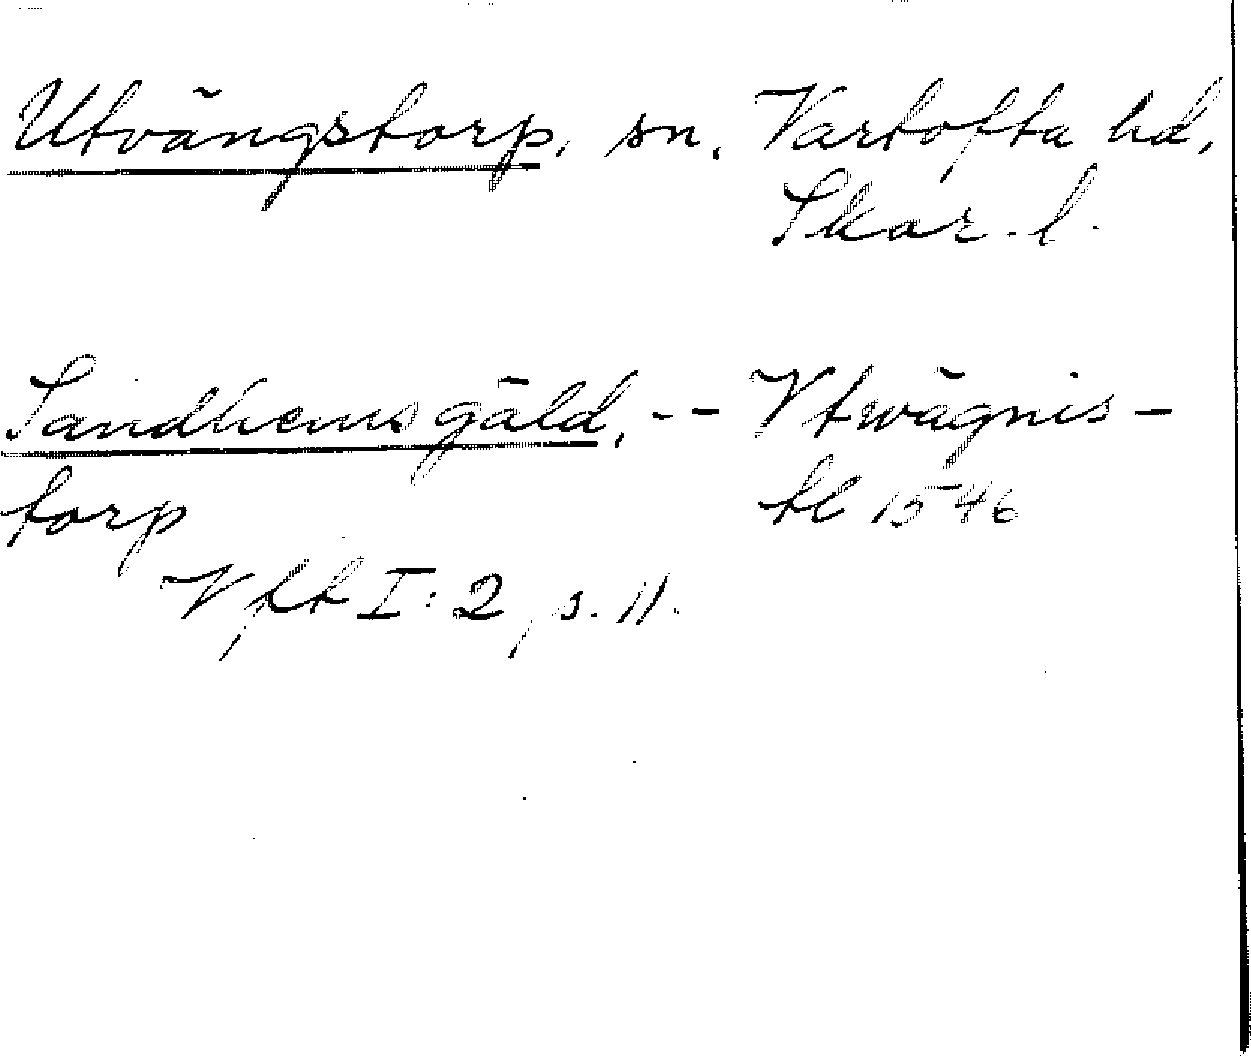 Utvängstorp, sn, Vartofta hd,
Skar. l.
Sandhems gäld, -- Vtwägnis-
torp
tl 1546
Vfft I: 2, s. 11.